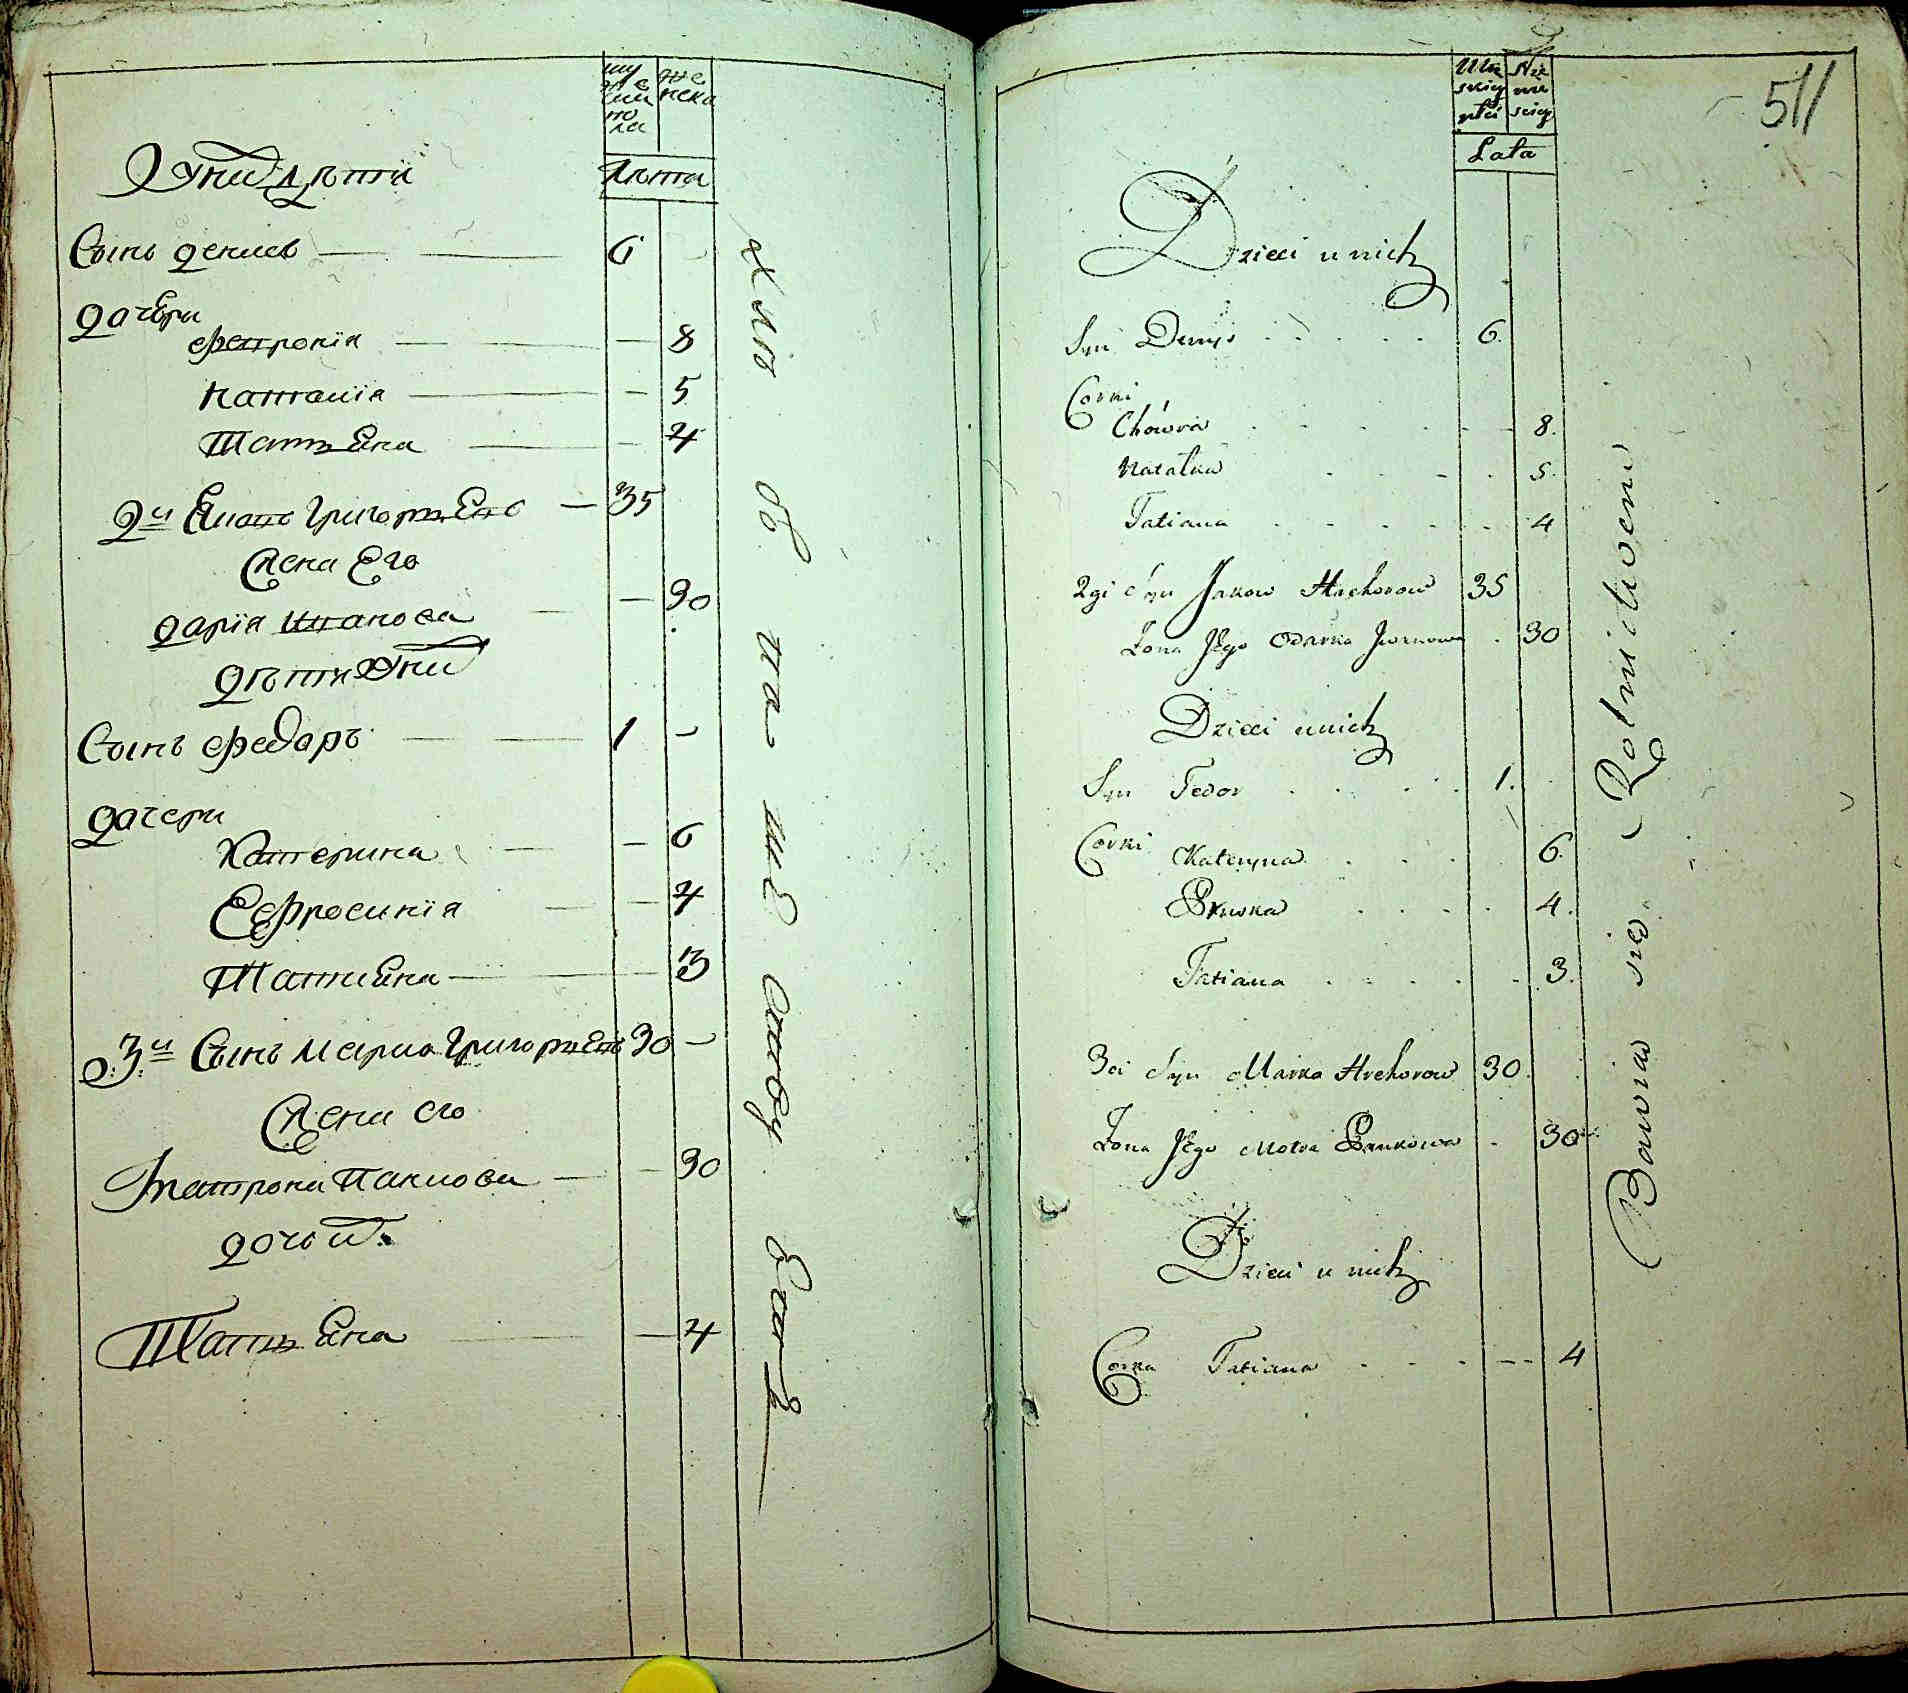 му
же
ска
по
ла
же
нска
Лѣта
У них дѣти
Сынъ денисъ 6 -
дочери
февронія - 8
наталія - 5
Татьена - 4
2й Яковъ Григорьевъ - 35
Жена Его
дарія Иванова - 30
дѣти У них
Сынъ федоръ 1 -
дочери
Катерина - 6
Еефросинія - 4
Татиена - 3
3й Сынъ Марко Григорьевъ 30 -
Жена его
Матрона Павлова - 30
дочь их
Татьена - 4
Хлѣбопашеством
Męz
skiey
płci
Niz
wie
sciey
Lata
511
Dzieci u nich
Syn Denys 6.
Corki
Chówra 8.
Natalka 5.
Tatiana 4
2gi Syn Jakow Hrehorow 35
Żona Jego Odarka Iwanowa 30
Dzieci u nich
Syn Fedor 1.
Corki Kateryna 6.
Pryśka 4.
Tatiana 3.
3ci Syn Marko Hrehorow 30.
Żona Jego Motra Pawłowa 30
Dzieci u nich
Corka Tatiana 4
Bawią się Rolnictwem